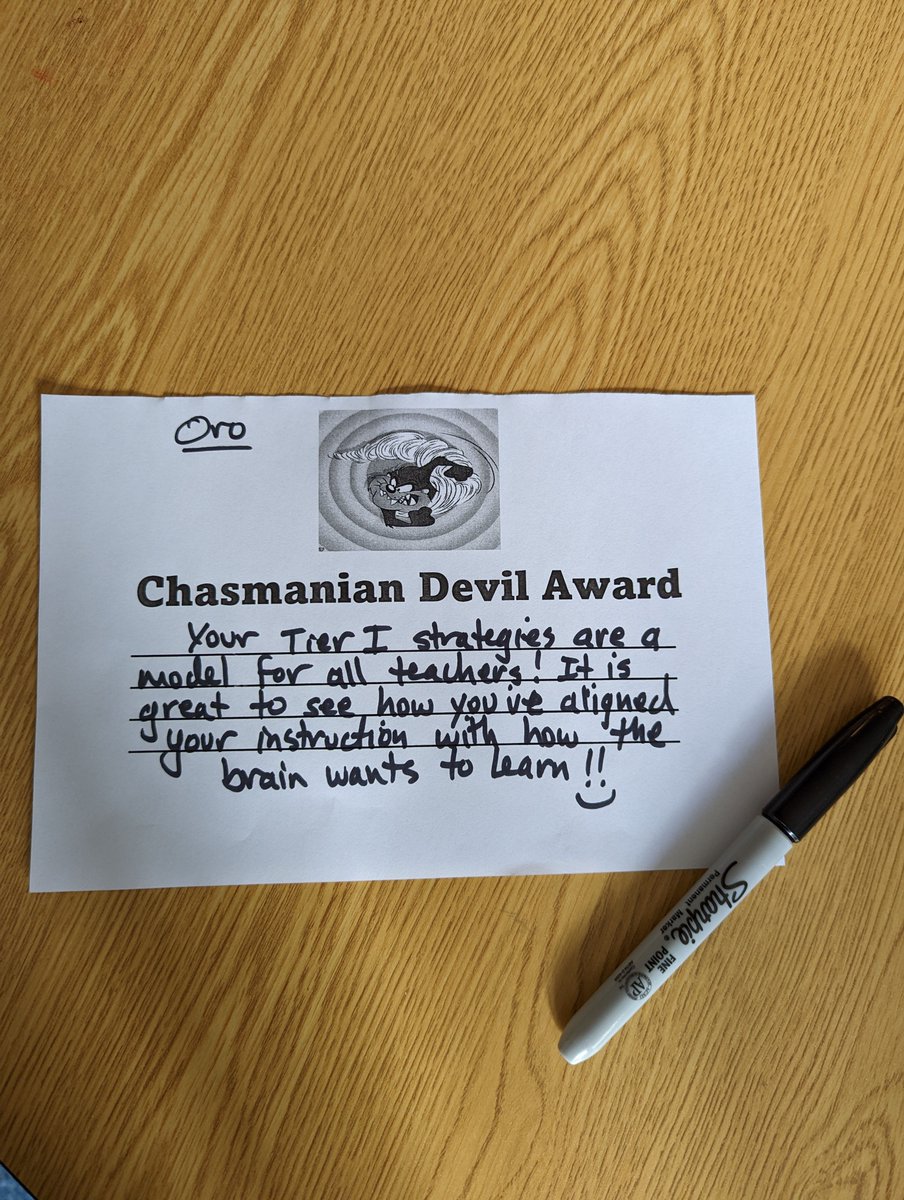 Oro
Chasmanian Devil Award
Your Tier I strategies are a
model for all teachers! It is
great to see how you've aligned
your instruction with how the
brain wants to learn!!
Sharpie
Permanent Marker
FINE
POINT
AP